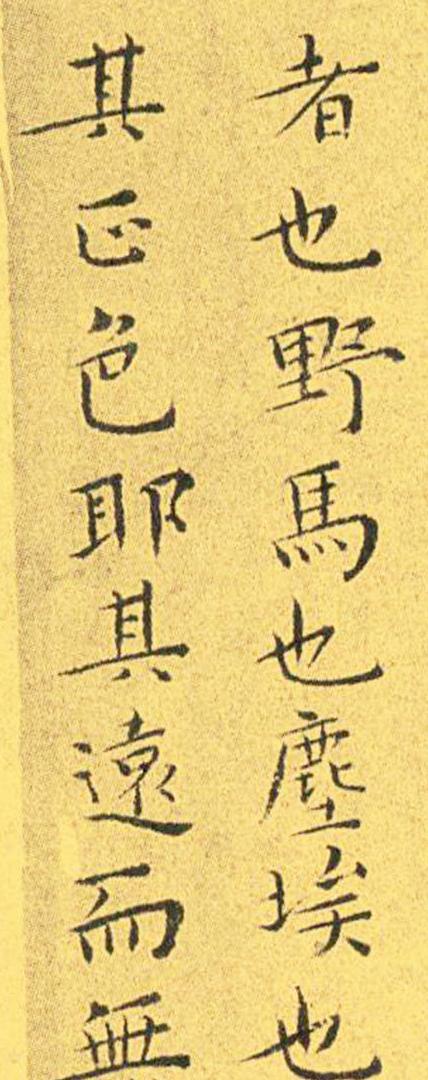 者也野馬也塵埃也
其正色耶其遠而無